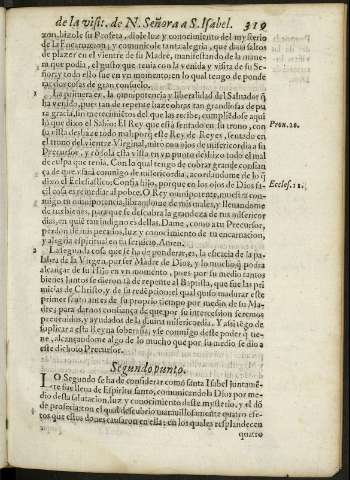 de la visit. de N. Señora a S. Isabel. 319
zon, hizole su Profeta, diole luz y conocimiento del mysterio
de la Encarnacion; y comunicole tanta alegria, que diòssaltos
de plazer en el vientre de su Madre, manifestando de la mane-
ra que podia, el gusto que tenia con la venida y visita de su Se-
ñor; y todo esto fue en vn momento: en lo qual tengo de ponde
rar dos cosas de gran consuelo.
1 La primera es, la omnipotencia y liberalidad del Saluador q̃
ha venido, pues tan de repente haze obras tan grandiosas de pu
ra gracia, sin merecimiẽtos del que las recibe, cumpliẽdose aqui
lo que dixo el Sabio: El Rey que està sentado en su trono, con
su vista deshaze todo mal; porq̃ este Rey de Reyes, sentado en
el trono del vientre Virginal, mirò con ojos de misericordia a su
Precursor, y cõ sola esta vista en vn punto deshizo todo el mal
de culpa que tenia. Con lo qual tengo de cobrar grande confian
ça de que vsarà conmigo de misericordia, acordandome de lo q̃
dixo el Ecclesiastico: Confia hijo, porque en los ojos de Dios fa
cil cosa es remediar al pobre. O Rey omnipotente, mostrà con-
migo vuestra omnipotencia, librandome de mis males, y llenandome
de tus bienes, para que se descubra la grandeza de tus misericor
dias, en quiẽ tan indigno es dellas. Dame, como a tu Precursor,
perdon de mis pecados, luz y conocimiento de tu encarnacion,
y alegria espiritual en tu seruicio. Amen.
Prou. 20.
Eccles. 11.
2 La segunda cosa que se ha de ponderar, es, la eficacia de la pa-
labra de la Virgen, por ser Madre de Dios, y lo mucho q̃ podra
alcançar de su Hijo en vn momento, pues por su medio tantos
bienes juntos se dieron tã de repente al Baptista, que fue las pri
micias de Christo, y de su redẽpcion: el qual quiso madurar este
primer fruto antes de su proprio tiempo por medio de su Ma-
dre; para darnos confiança de que por su intercession seremos
preuenidos, y ayudados de la diuina misericordia. Y assi tẽgo de
suplicar a esta Reyna soberana, vse conmigo deste poder q̃ tie-
ne, alcançandome algo de lo mucho que por su medio se dio a
este dichoso Precursor.
Segundo punto.
LO Segundo se ha de considerar como santa Isabel juntamẽ-
te fue llena de Espiritu santo, comunicandola Dios por me-
dio desta salutacion, luz y conocimiento deste mysterio, y el dõ
de profecia: con el qual descubrio marauillosamente quatro efe-
tos que estos dones causaron en ella: en los quales resplandecen
quatro